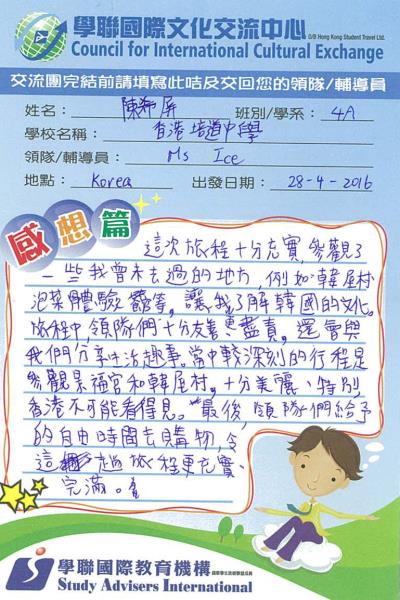 學聯國際文化交流中心 D/B Hong Kong Student Travel Ltd.
Council for International Cultural Exchange
交流團完結前請填寫此咭及交回您的領隊/輔導員
姓名： 陳希屏 班別/學系： 4A
學校名稱： 香港培道中學
領隊/輔導員： Ms Ice
地點： Korea 出發日期： 28-4-2016
感想篇
這次旅程十分充實，參觀了
一些我曾未去過的地方，例如韓屋村
泡菜體驗館等，讓我了解韓國的文化。
旅程中，領隊們十分友善盡責，還會與
我們分享生活趣事。當中較深刻的行程是
參觀景福宮和韓屋村，十分美麗、特別，
香港不可能看得見。最後，領隊們給予
的自由時間去購物，令
這趟旅程更充實、
完滿。
學聯國際教育機構
Study Advisers International